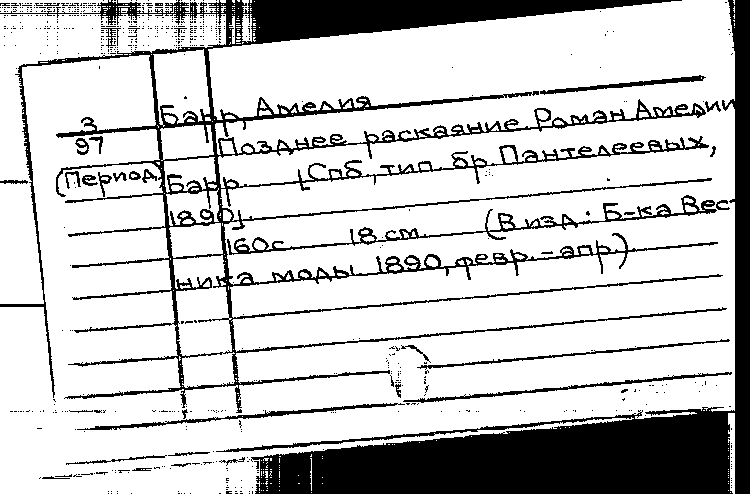 3
97
(Период.)
Барр, Амелия
Позднее раскаяние. Роман Амелии
Барр. [Спб., тип. бр. Пантелеевых,
1890].
160с. 18 см. (В изд.: Б-ка Вест-
ника моды 1890, февр.-апр.).